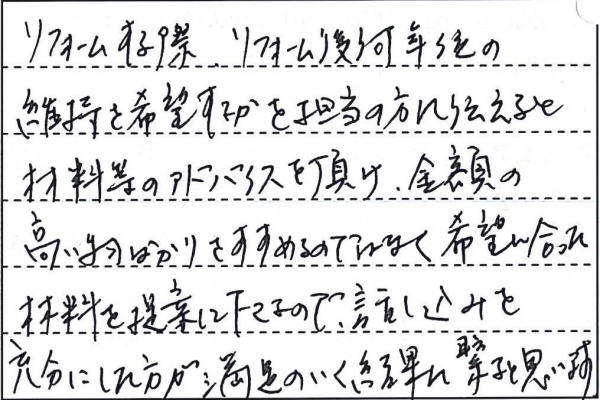 リフォームする際、リフォーム後何年位の
維持を希望するかを担当の方に伝えると
材料等のアドバイスを頂け、金額の
高い物ばかりをすすめるのではなく希望に合った
材料を提案して下さるので、話し込みを
充分にした方が満足のいく結果に繋ると思います